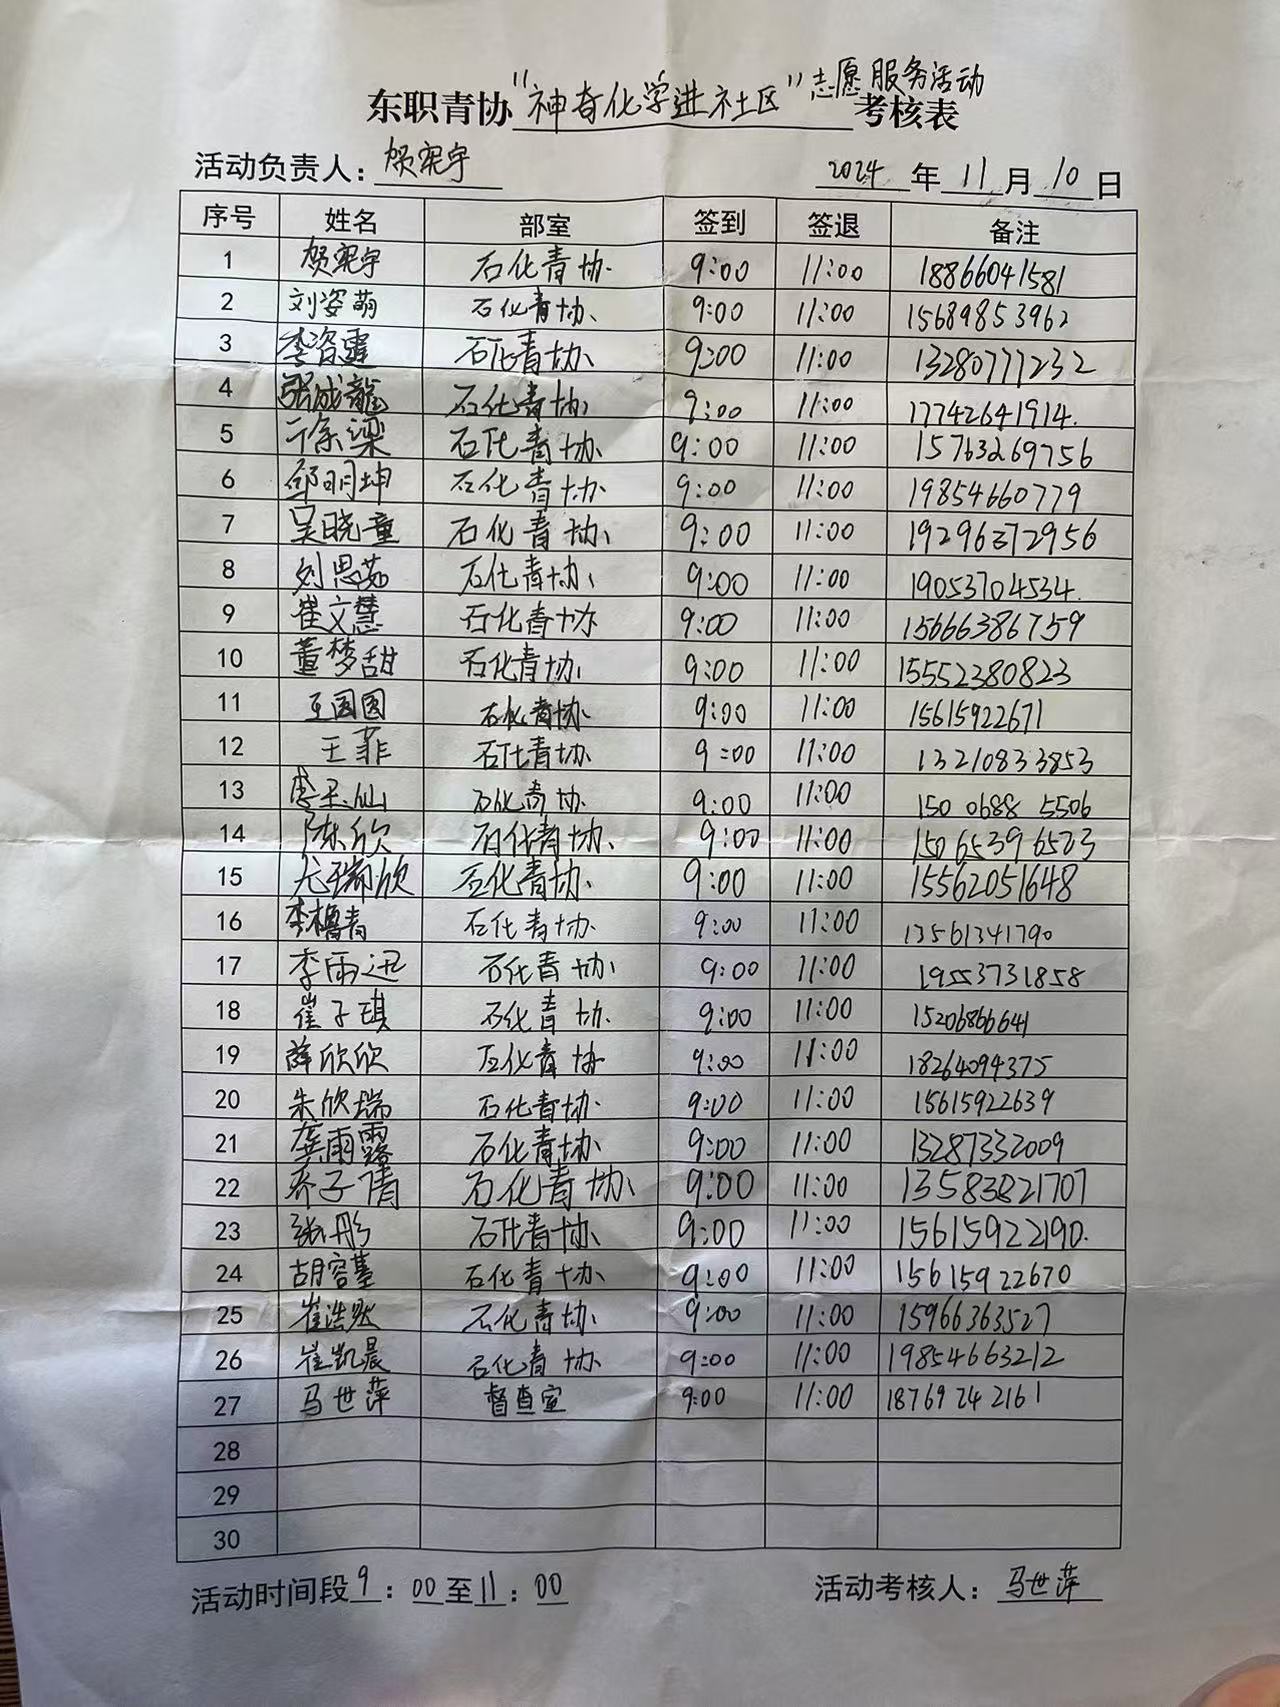 东职青协“神奇化学进社区”志愿服务活动考核表
活动负责人：贺宪宇 2024年11月10日
序号 姓名 部室 签到 签退 备注
1 贺宪宇 石化青协 9:00 11:00 18866041581
2 刘姿萌 石化青协 9:00 11:00 15689853962
3 李资霆 石化青协 9:00 11:00 13280777232
4 张成龍 石化青协 9:00 11:00 17742641914
5 徐梁 石化青协 9:00 11:00 15763269756
6 邹明坤 石化青协 9:00 11:00 19854660779
7 吴晓童 石化青协 9:00 11:00 19296372956
8 刘思茹 石化青协 9:00 11:00 19053704534
9 崔文慧 石化青协 9:00 11:00 15666386759
10 董梦甜 石化青协 9:00 11:00 15552380823
11 王园园 石化青协 9:00 11:00 15615922671
12 王菲 石化青协 9:00 11:00 13210833853
13 李玉仙 石化青协 9:00 11:00 150 0688 5506
14 陈欣 石化青协 9:00 11:00 15065396523
15 尤瑞欣 石化青协 9:00 11:00 15562051648
16 李櫓青 石化青协 9:00 11:00 13561341790
17 李雨迅 石化青协 9:00 11:00 19553731858
18 崔子琪 石化青协 9:00 11:00 15206866641
19 薛欣欣 石化青协 9:00 11:00 18264094375
20 朱欣瑞 石化青协 9:00 11:00 15615922639
21 龚雨露 石化青协 9:00 11:00 13287332009
22 乔子倩 石化青协 9:00 11:00 13583821707
23 张彤 石化青协 9:00 11:00 15615922190
24 胡容蓥 石化青协 9:00 11:00 15615922670
25 崔浩然 石化青协 9:00 11:00 15966363527
26 崔凯晨 石化青协 9:00 11:00 19854663212
27 马世萍 督查室 9:00 11:00 18769242161
28
29
30
活动时间段9：00至11：00 活动考核人：马世萍